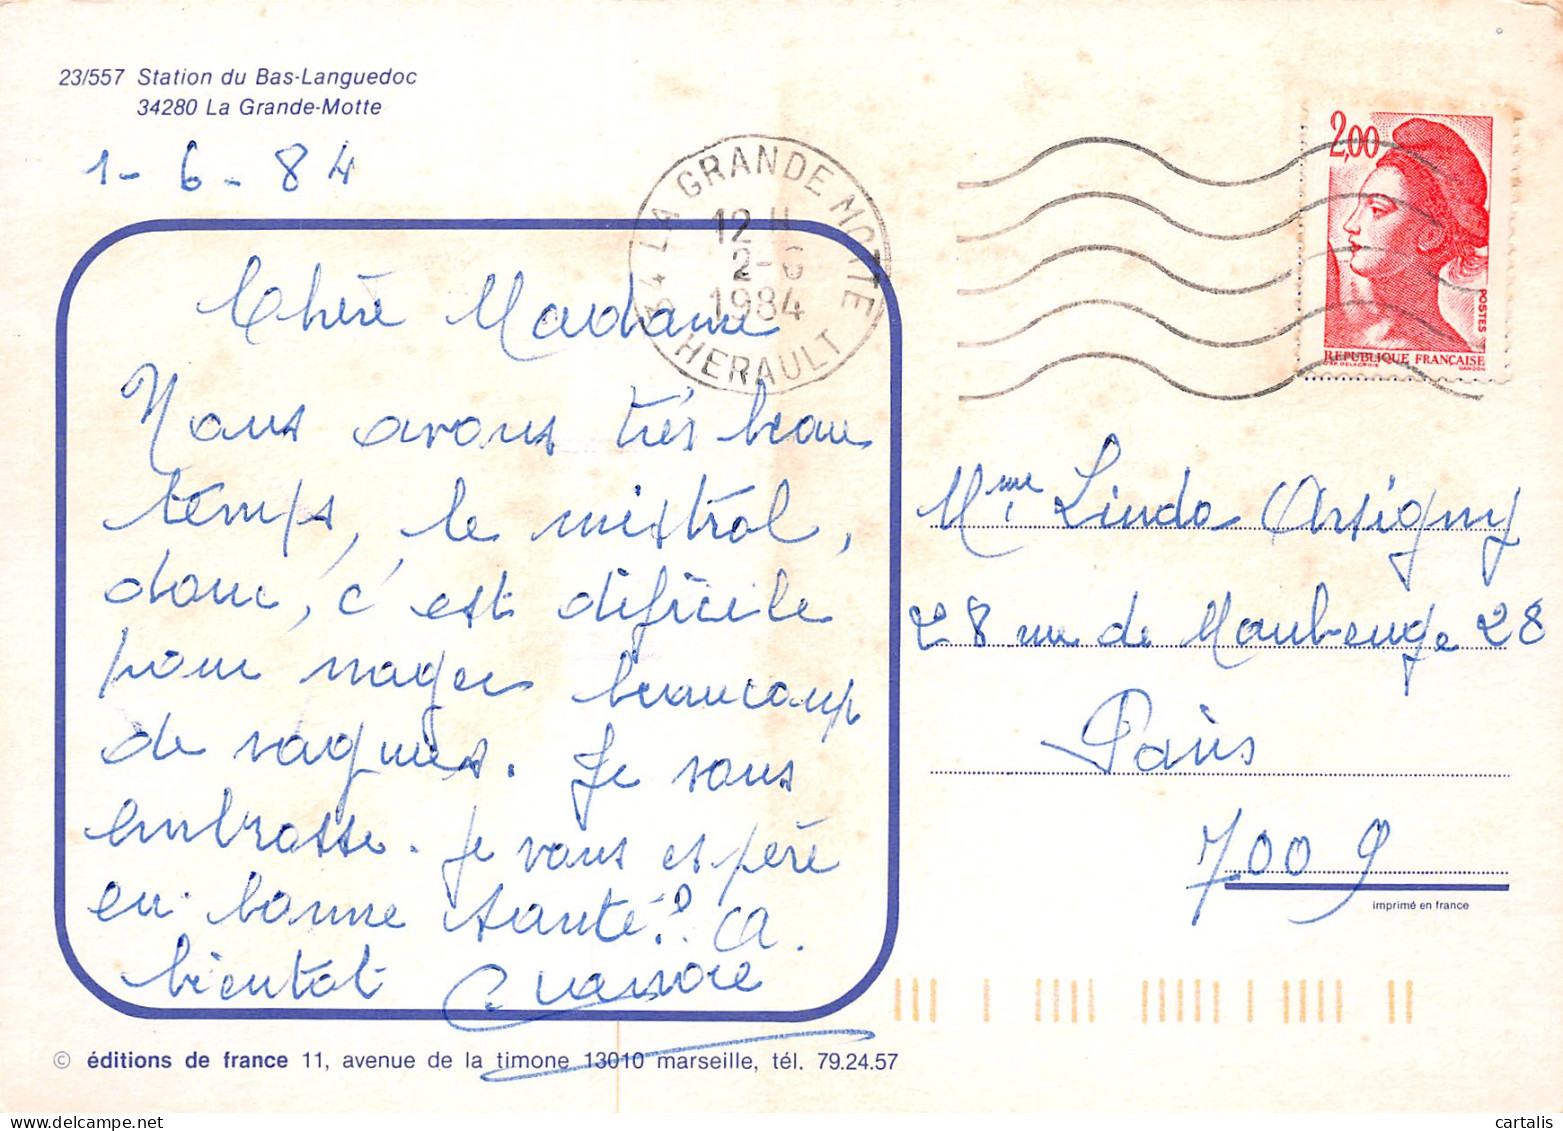 23/557 Station du Bas-Languedoc
34280 La Grande-Motte
1-6-84
34 LA GRANDE MOTTE
12 H
2-6
1984
HERAULT
2,00
POSTES
REPUBLIQUE FRANÇAISE
GANDON
Chère Madame
Nous avons très beau
temps, le mistral,
donc, c'est dificile
pour nager beaucoup
de vagues. Je vous
embrasse. Je vous espère
en bonne santé? a.
bientot
Mme Linda Arsigny
28 rue de Maubeuge 28
Paris
7009
imprimé en france
© éditions de france 11, avenue de la timone 13010 marseille, tél. 79.24.57
cartalis